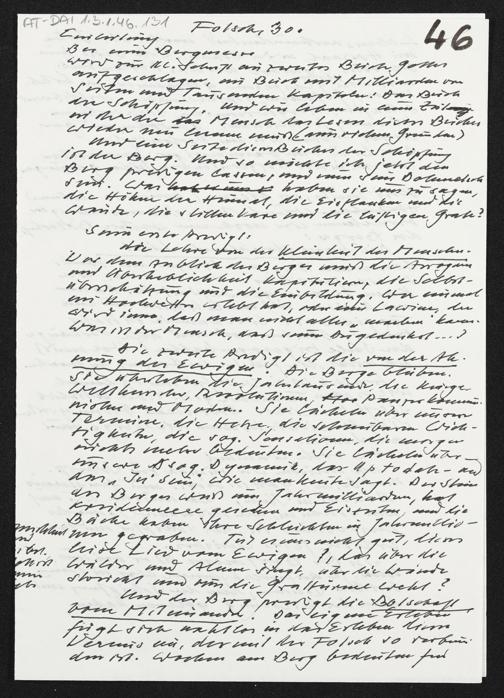 AT-DAI 1.3.1.46.131
46
Folsch, 30.
Einleitung
Bei einer Bergmesse
wird zur Hl. Schrift ein zweites Buch Gottes
aufgeschlagen, ein Buch mit Milliarden von
Seiten und Tausenden Kapiteln: Das Buch
der Schöpfung. Und wir leben in einer Zeit
wo der Mensch das Lesen dieses Buches
wieder neu lernen muß (aus vielen Gründen)
Und eine Seite dieses Buches der Schöpfung
ist der Berg. Und so möchte ich jetzt den
Berg predigen lassen, und nur sein Dolmetsch
sein. Was haben sie uns zu sagen,
die Höhen der Himmel, die Eisflanken und die
Wände, die stillen Kare und die luftigen Grate?
Seine erste Predigt:
die Lehre von der Kleinheit des Menschen.
Vor dem Anblick des Berges muß die Arroganz
und Überheblichkeit kapitulieren, die Selbst-
überschätzung und die Einbildung. Wer einmal
ein Hochwetter erlebt hat, oder eine Lawine, der
wird inne, daß man nicht alles „machen“ kann.
Was ist der Mensch, daß seiner Du gedenkst...?
Die zweite Predigt ist die von der Ah-
nung des Ewigen. Die Berge bleiben.
Sie überleben die Jahrtausende, die
Revolutionen,
und Moden. Sie lächeln über unsere
Termine, die Hetze, die scheinbaren Wich-
tigkeiten, die sog. Sensationen, die morgen
nichts mehr bedeuten. Sie lächeln über
unsere Dynamik, das Up to date - und
das „In“ sein, wie man heute sagt. Der Stein
des Berges weiß um Jahrmilliarden, hat
gesehen und Eiszeiten, und die
Bäche haben ihre Schluchten in Jahrmillio-
nen gegraben. Tut es uns nicht gut, dieses
Lied vom Ewigen, das über die
Wälder und Almen singt, über die Wände
streicht und um die Grattürme weht?
Und der Berg predigt die Botschaft
vom Miteinander. Das eigene Erleben
fügt sich nahtlos in das Erleben dieses
Vereins ein, der mit der Folsch so verbun-
den ist. am Berg bedeuten für